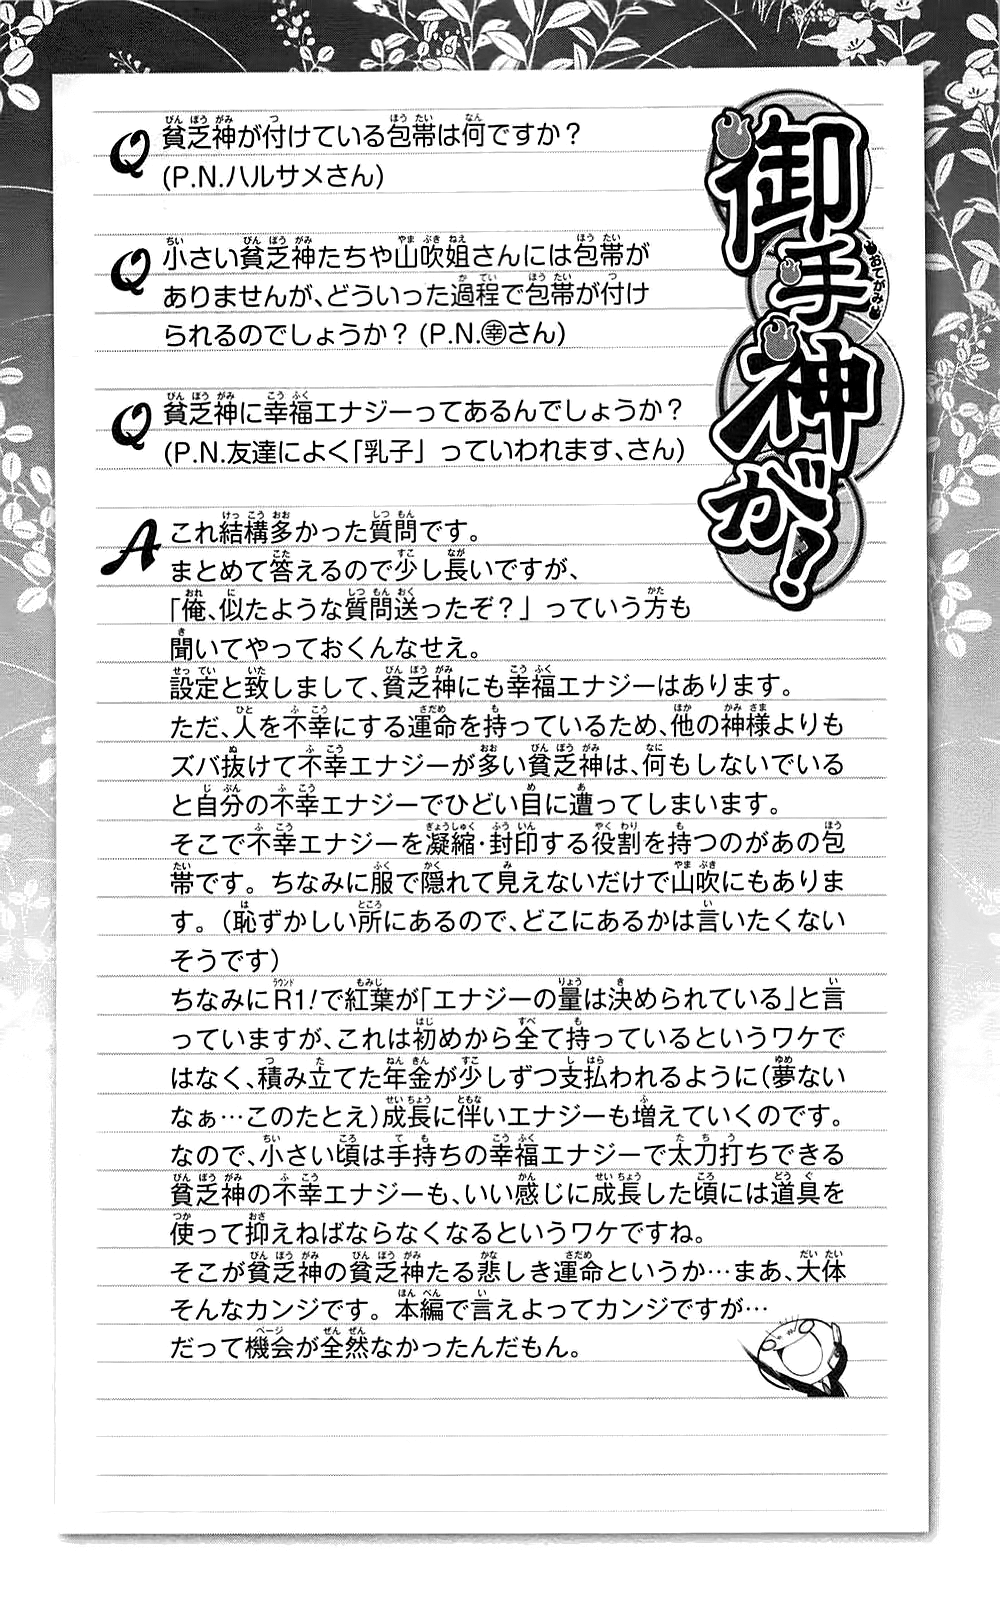 御手神が!
おてがみ
Q 貧乏神が付けている包帯は何ですか？
(P.N.ハルサメさん)
Q 小さい貧乏神たちや山吹姐さんには包帯が
ありませんが、どういった過程で包帯が付け
られるのでしょうか？ (P.N.㊵さん)
Q 貧乏神に幸福エナジーってあるんでしょうか？
(P.N.友達によく「乳子」っていわれます、さん)
A これ結構多かった質問です。
まとめて答えるので少し長いですが、
「俺、似たような質問送ったぞ？」っていう方も
聞いてやっておくんなせえ。
設定と致しまして、貧乏神にも幸福エナジーはあります。
ただ、人を不幸にする運命を持っているため、他の神様よりも
ズバ抜けて不幸エナジーが多い貧乏神は、何もしないでいる
と自分の不幸エナジーでひどい目に遭ってしまいます。
そこで不幸エナジーを凝縮・封印する役割を持つのがあの包
帯です。ちなみに服で隠れて見えないだけで山吹にもありま
す。（恥ずかしい所にあるので、どこにあるかは言いたくない
そうです）
ちなみにR1!で紅葉が「エナジーの量は決められている」と言
っていますが、これは初めから全て持っているというワケで
はなく、積み立てた年金が少しずつ支払われるように（夢ない
なぁ…このたとえ）成長に伴いエナジーも増えていくのです。
なので、小さい頃は手持ちの幸福エナジーで太刀打ちできる
貧乏神の不幸エナジーも、いい感じに成長した頃には道具を
使って抑えねばならなくなるというワケですね。
そこが貧乏神の貧乏神たる悲しき運命というか…まあ、大体
そんなカンジです。本編で言えよってカンジですが…
だって機会が全然なかったんだもん。